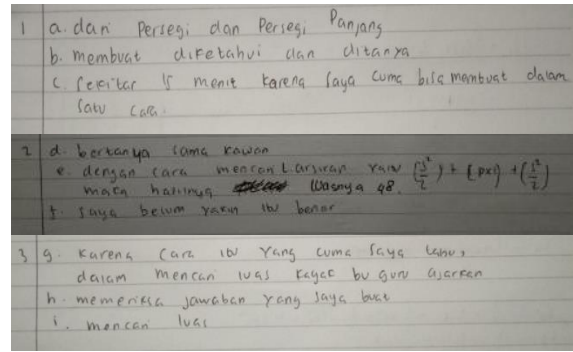 1 a. dari Persegi dan Persegi Panjang
b. membuat diketahui dan ditanya
c. Sekitar 15 menit karena saya cuma bisa membuat dalam
satu cara.
2 d. bertanya sama kawan
e. dengan cara mencari Luasnya yaitu (s²/2) + (pxl) + (s²/2)
maka hasilnya luasnya 48.
f. saya belum yakin itu benar
3 g. Karena cara itu yang cuma saya tahu,
dalam mencari luas kayac bu guru ajarkan
h. memeriksa jawaban yang saya buat
i. mencari luas